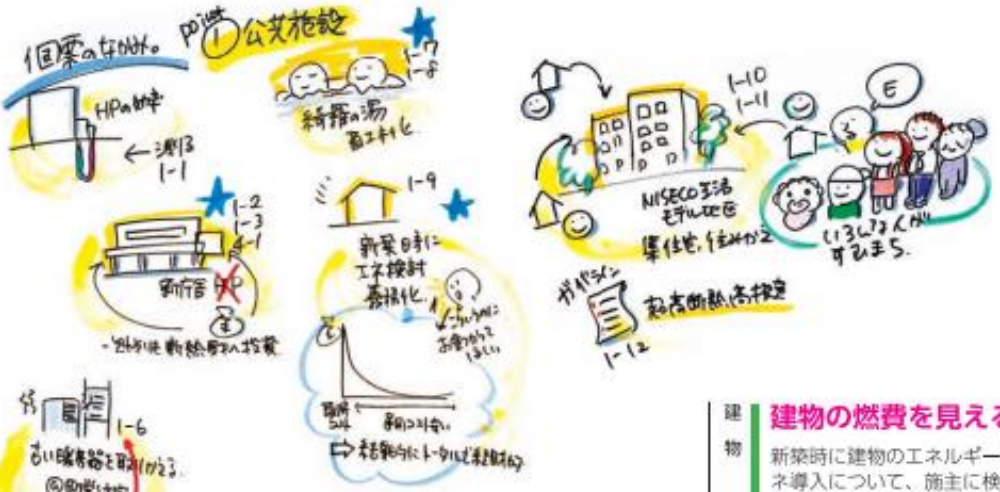 個票のなかみ。
point
① 公共施設
HPの効率
1-1
1-7
1-8
綺羅の湯
省エネ化
1-2
1-3
4-1
新庁舎 HP
1-9
新築時に
エネ検討
義務化
お金つかって
ほしい
初期
コスト
⇒ 結果的にトータルで
1-6
古い暖房器を取りかえる
1-10
1-11
NISECO生活
モデル地区
集住宅、住みかえ
E
いろんな人が
すむまち
ガイドライン
超高断熱、高
1-12
建物
建物の燃費を見える
新築時に建物のエネルギー
ネ導入について、施主に検